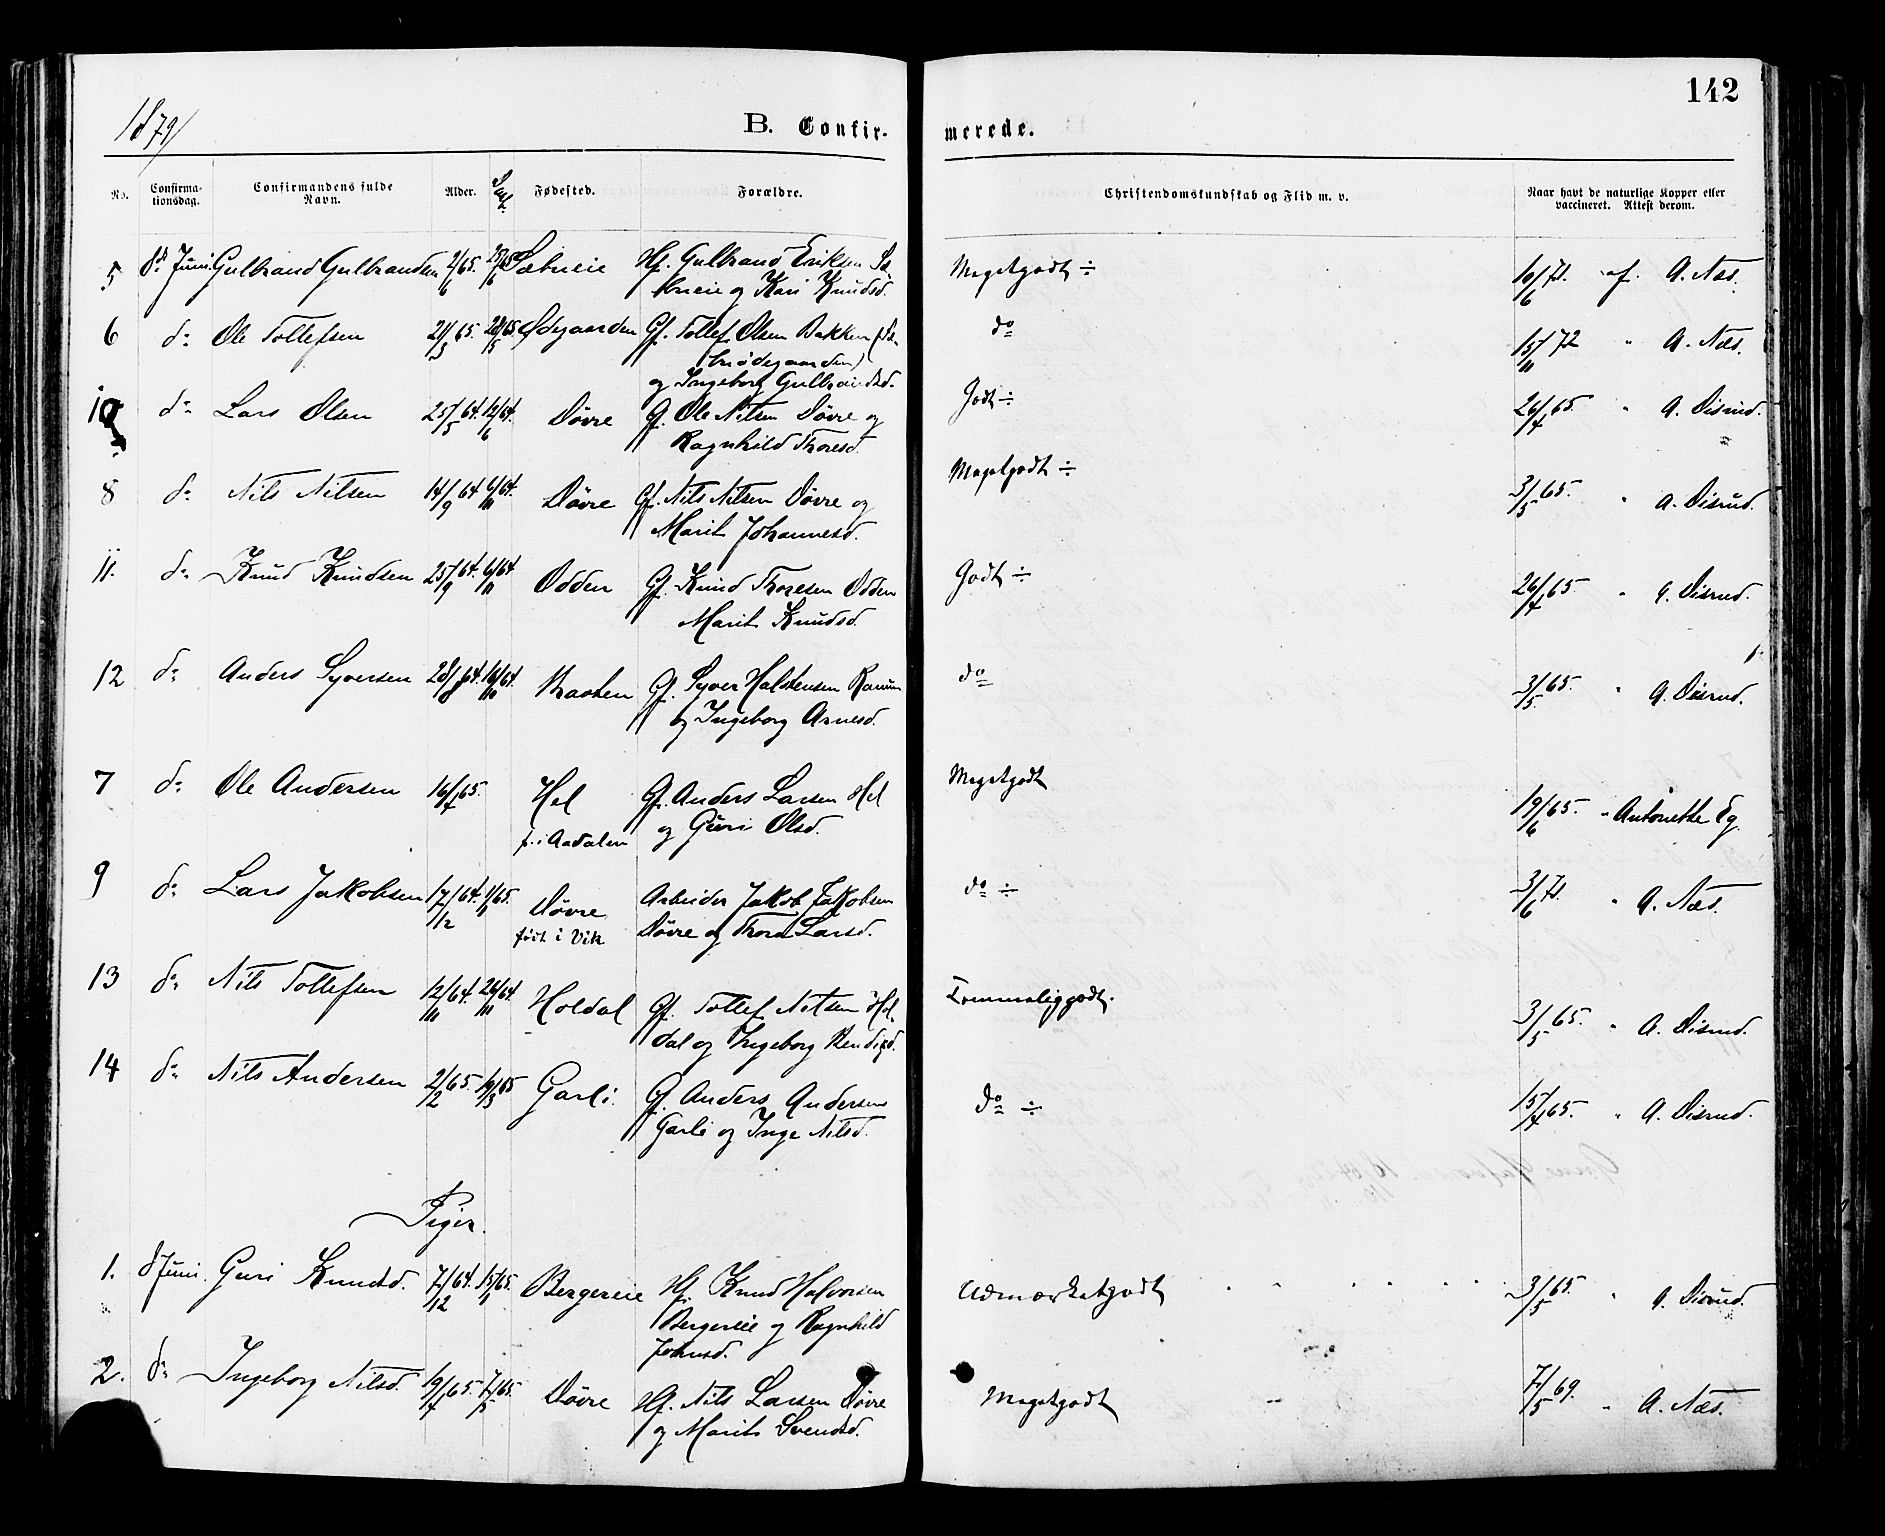 142
1879/
B. Confirmerede.
No. Confirmationsdag. Confirmandens fulde Navn. Alder. Døbt. Fødested. Forældre. Christendomskundskab og Flid m. v. Naar havt de naturlige Kopper eller vaccineret. Attest derom.
5 8de Juni Gulbrand Gulbrandsen 2/6 65. 25/6 65 Sæbrieie Hf. Gulbrand Eriksen Sæbrieie og Kari Knudsd. Megetgodt ÷ 10/6 71. af A. Næs.
6 do Ole Tollefsen 21/3 65. 28/5 65 Ødegaarden Gf. Tollef Olsen Bakken (Sæbriødegaarden) og Ingeborg Gulbrandsd. do 15/11 72 " A. Næs.
10 do Lars Olsen 25/5 64. 12/6 64. Døvre Gf. Ole Nilsen Døvre og Ragnhild Thoresd. Godt ÷ 26/4 65. " A. Disrud.
8 do Nils Nilsen 14/9 64 6/11 64. Døvre Gf. Nils Nilsen Døvre og Marit Johannesd. Megetgodt ÷ 3/5 65. " A. Disrud.
11. do Knud Knudsen 25/9 64. 6/11 64 Odden Gf. Knud Thoresen Odden Marit Knudsd. Godt ÷ 26/4 65. " A. Disrud.
12 do Anders Syversen 28/8 64. 16/10 64. Braaten Gf. Syver Halstensen Ramum og Ingeborg Arnesd. do 3/5 65. " A. Disrud.
7 do Ole Andersen 16/4 65. Hel f. i Aadalen Gf. Anders Larsen Hel og Guri Olsd. Megetgodt 19/6 65. " Antonette Eg.
9 do Lars Jakobsen 17/12 64. 1/1 65. Døvre født i Vik Arbeider Jakob Jakobsen Døvre og Thora Larsd. do ÷ 3/6 71. " A. Næs.
13 do Nils Tollefsen 12/11 64. 26/11 64. Holdal Gf. Tollef Nilsen Holdal og Ingeborg Bendigsd. Temmeliggodt. 3/5 65. " A. Disrud.
14 do Nils Andersen 2/2 65. 19/3 65 Garli. Gf. Anders Andersen Garli og Inge Nilsd. do ÷ 15/4 65. " A. Disrud.
Piger.
1. 8 Juni. Guri Knudsd. 7/12 64. 15/1 65. Bergereie Hf. Knud Halvorsen Bergereie og Ragnhild Johnsd. Udmærketgodt " " " " " 3/5 65. " A. Disrud.
2. do Ingeborg Nilsd. 19/4 65. 7/5 65. Døvre Hf. Nils Larsen Døvre og Marit Svendsd. Megetgodt " 7/5 69. " A. Næs.